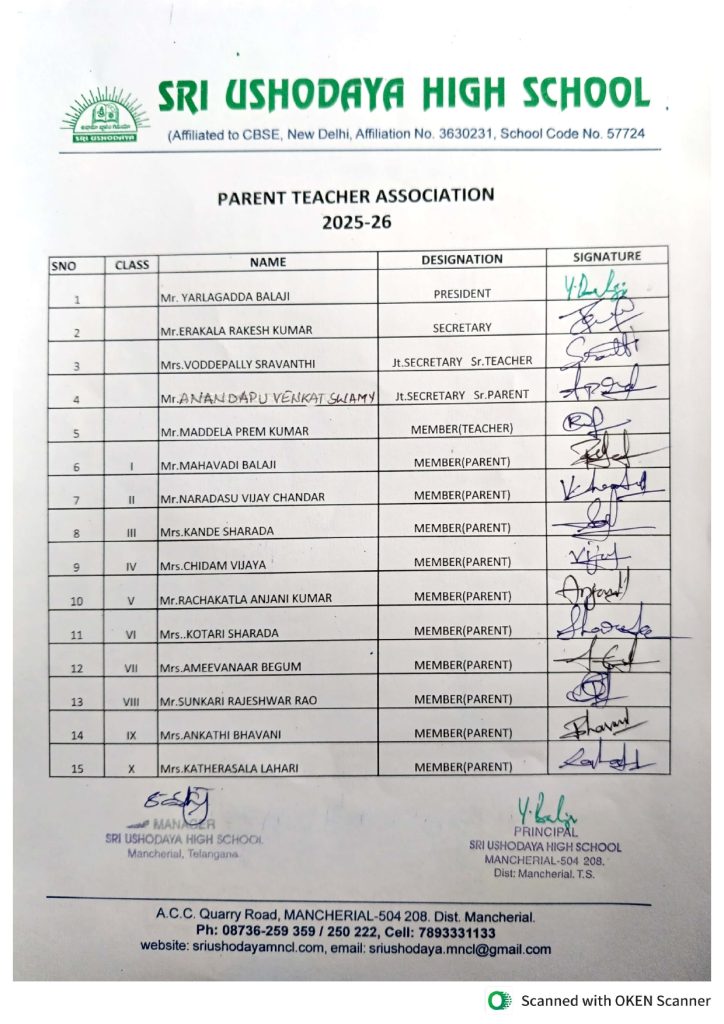 SRI USHODAYA HIGH SCHOOL
SRI USHODAYA
(Affiliated to CBSE, New Delhi, Affiliation No. 3630231, School Code No. 57724
PARENT TEACHER ASSOCIATION
2025-26
SNO CLASS NAME DESIGNATION SIGNATURE
1 Mr. YARLAGADDA BALAJI PRESIDENT Y. Balaji
2 Mr.ERAKALA RAKESH KUMAR SECRETARY
3 Mrs.VODDEPALLY SRAVANTHI Jt.SECRETARY Sr.TEACHER
4 Mr.ANANDAPU VENKAT SWAMY Jt.SECRETARY Sr.PARENT
5 Mr.MADDELA PREM KUMAR MEMBER(TEACHER)
6 I Mr.MAHAVADI BALAJI MEMBER(PARENT)
7 II Mr.NARADASU VIJAY CHANDAR MEMBER(PARENT)
8 III Mrs.KANDE SHARADA MEMBER(PARENT)
9 IV Mrs.CHIDAM VIJAYA MEMBER(PARENT) Vijay
10 V Mr.RACHAKATLA ANJANI KUMAR MEMBER(PARENT)
11 VI Mrs..KOTARI SHARADA MEMBER(PARENT)
12 VII Mrs.AMEEVANAAR BEGUM MEMBER(PARENT)
13 VIII Mr.SUNKARI RAJESHWAR RAO MEMBER(PARENT)
14 IX Mrs.ANKATHI BHAVANI MEMBER(PARENT) Bhavani
15 X Mrs.KATHERASALA LAHARI MEMBER(PARENT)
MANAGER
SRI USHODAYA HIGH SCHOOL
Mancherial, Telangana.
Y. Balaji
PRINCIPAL
SRI USHODAYA HIGH SCHOOL
MANCHERIAL-504 208.
Dist: Mancherial. T.S.
A.C.C. Quarry Road, MANCHERIAL-504 208. Dist. Mancherial.
Ph: 08736-259 359 / 250 222, Cell: 7893331133
website: sriushodayamncl.com, email: sriushodaya.mncl@gmail.com
Scanned with OKEN Scanner